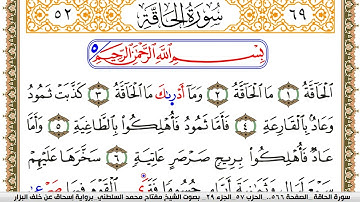 ٦٩ سُورَةُ الْحَاقَّةِ ٥٢
بِسْمِ اللَّهِ الرَّحْمَٰنِ الرَّحِيمِ
الْحَاقَّةُ ١ مَا الْحَاقَّةُ ٢ وَمَا أَدْرِىٰكَ مَا الْحَاقَّةُ ٣ كَذَّبَتْ ثَمُودُ
وَعَادٌ بِالْقَارِعَةِ ٤ فَأَمَّا ثَمُودُ فَأُهْلِكُوا بِالطَّاغِيَةِ ٥ وَأَمَّا
عَادٌ فَأُهْلِكُوا بِرِيحٍ صَرْصَرٍ عَاتِيَةٍ ٦ سَخَّرَهَا عَلَيْهِمْ
سَبْعَ لَيَالٍ وَثَمَانِيَةَ أَيَّامٍ حُسُومًا فَتَرَى الْقَوْمَ فِيهَا صَرْعَىٰ
سورة الحاقة . الصفحة ٥٦٦ .. الحزب ٥٧ الجزء ٢٩ بصوت الشيخ مفتاح محمد السلطني . برواية إسحاق عن خلف البزار